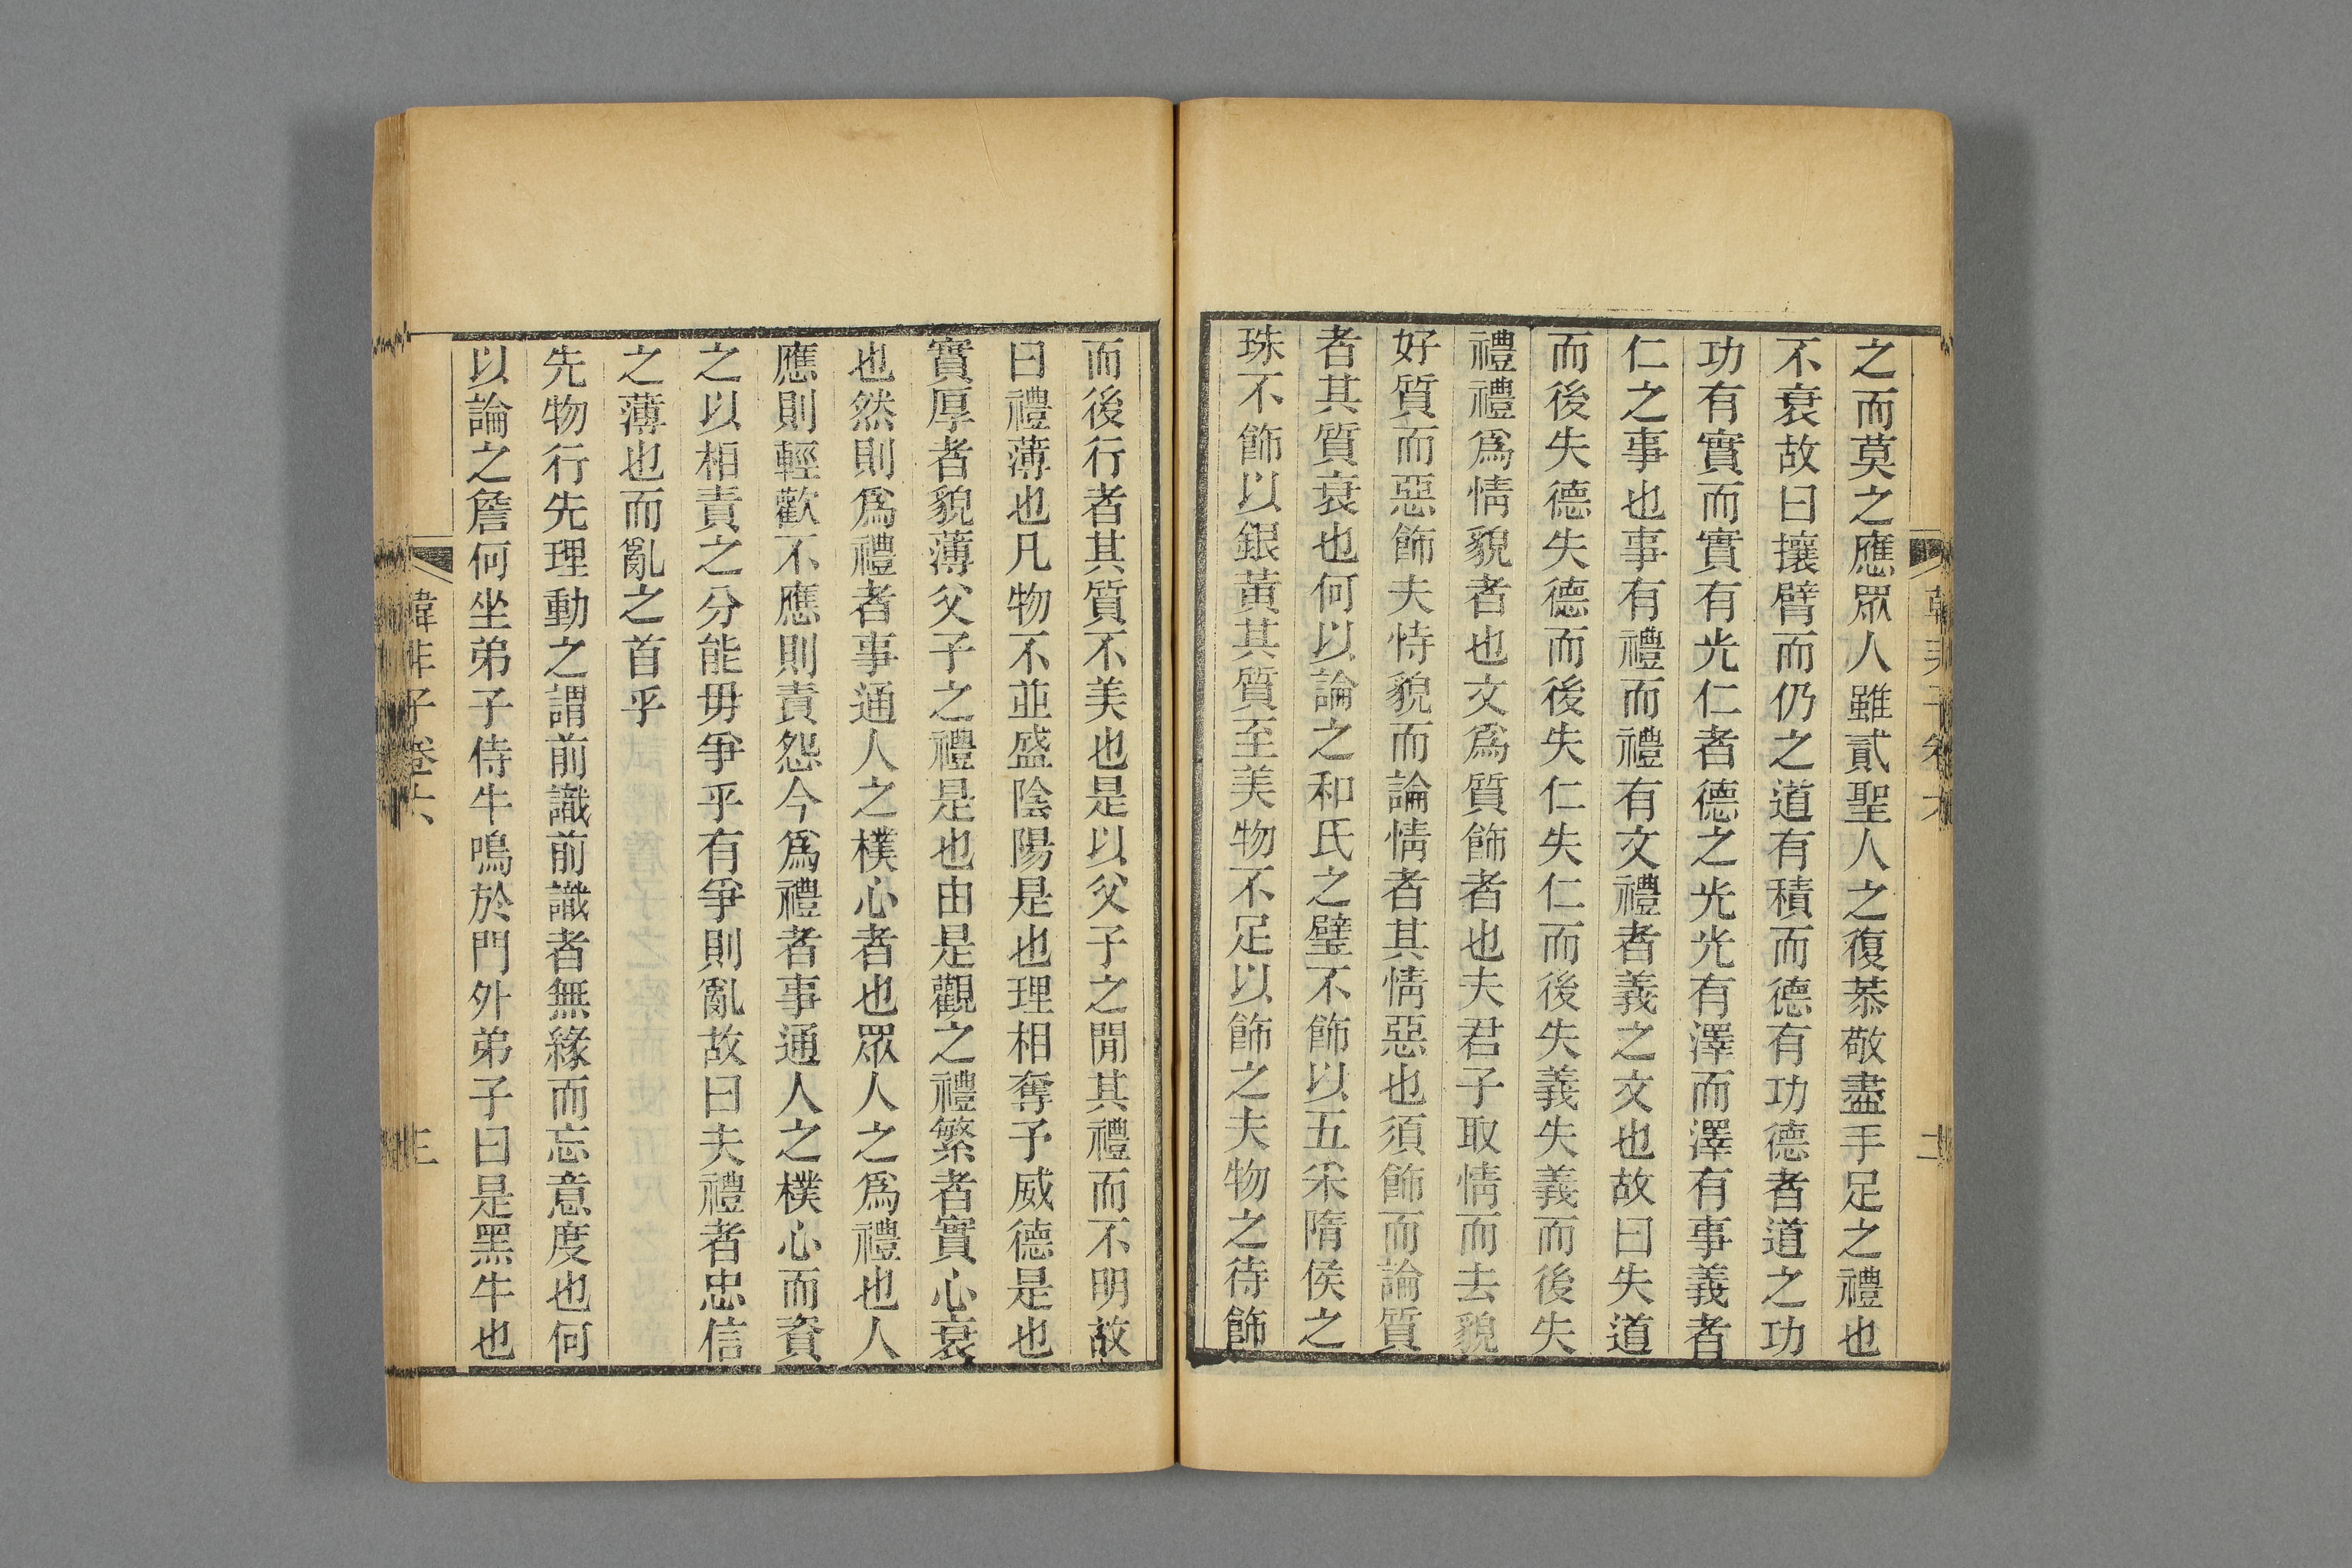 之而莫之應眾人雖貳聖人之復恭敬盡手足之禮也
不衰故曰攘臂而仍之道有積而德有功德者道之功
功有實而實有光仁者德之光光有澤而澤有事義者
仁之事也事有禮而禮有文禮者義之文也故曰失道
而後失德失德而後失仁失仁而後失義失義而後失
禮禮爲情貌者也文爲質飾者也夫君子取情而去貌
好質而惡飾夫恃貌而論情者其情惡也須飾而論質
者其質衰也何以論之和氏之璧不飾以五采隋侯之
珠不飾以銀黃其質至美物不足以飾之夫物之待飾
而後行者其質不美也是以父子之閒其禮而不明故
曰禮薄也凡物不並盛陰陽是也理相奪予威德是也
實厚者貌薄父子之禮是也由是觀之禮繁者實心衰
也然則爲禮者事通人之樸心者也眾人之爲禮也人
應則輕歡不應則責怨今爲禮者事通人之樸心而資
之以相責之分能毋爭乎有爭則亂故曰夫禮者忠信
之薄也而亂之首乎
先物行先理動之謂前識前識者無緣而忘意度也何
以論之詹何坐弟子侍牛鳴於門外弟子曰是黑牛也
韓非子卷六